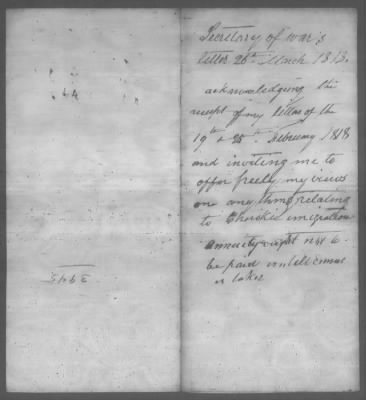 Secretary of war's
letter 26th March 1818.
acknowledging the
receipt of my letters of the
19th & 25th February 1818
and inviting me to
offer freely my views
on any thing relating
to Cherokee emigration
annuity ought not to
be paid until census
is taken